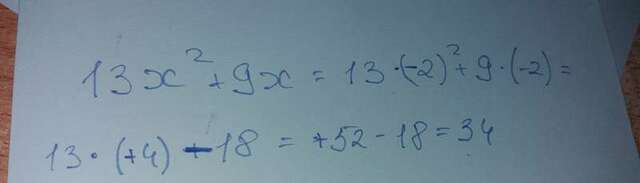 13x² + 9x = 13 · (-2)² + 9 · (-2) =
13 · (+4) - 18 = +52 - 18 = 34